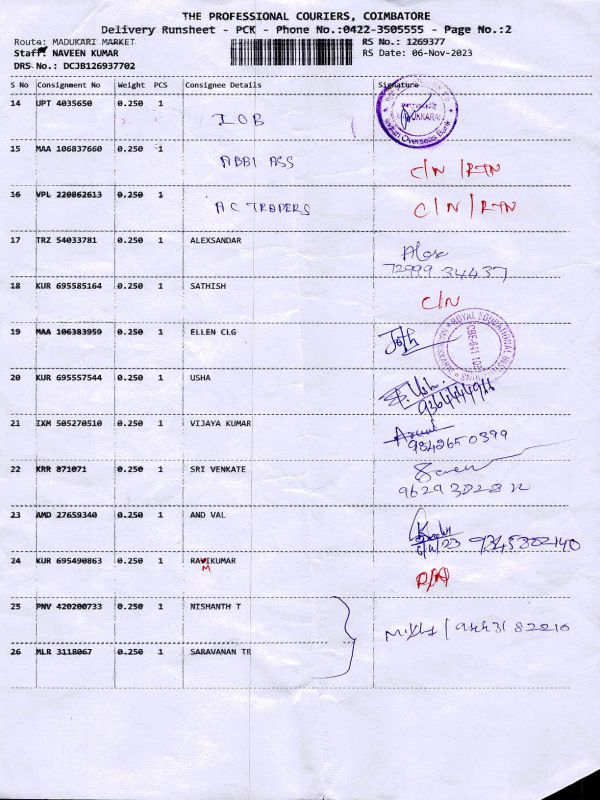 THE PROFESSIONAL COURIERS, COIMBATORE
Delivery Runsheet - PCK - Phone No.:0422-3505555 - Page No.:2
Route: MADUKARI MARKET RS No.: 1269377
Staff: NAVEEN KUMAR RS Date: 06-Nov-2023
DRS No.: DCJB126937702
S No Consignment No Weight PCS Consignee Details Signature
14 UPT 4035650 0.250 1 IOB Indian Overseas Bank
15 MAA 106837660 0.250 1 ABBI ASS C/N / RTN
16 VPL 220862613 0.250 1 AC TRADERS C/N / RTN
17 TRZ 54033781 0.250 1 ALEXSANDAR Alex
72999 34437
18 KUR 695585164 0.250 1 SATHISH C/N
19 MAA 106383959 0.250 1 ELLEN CLG ROYAL EDUCATIONAL
20 KUR 695557544 0.250 1 USHA
21 IXM 505270510 0.250 1 VIJAYA KUMAR
9842650399
22 KRR 871071 0.250 1 SRI VENKATE
23 AMD 27659340 0.250 1 AND VAL
6/11/23
24 KUR 695490863 0.250 1 RAVIKUMAR
M
25 PNV 420200733 0.250 1 NISHANTH T
26 MLR 3118067 0.250 1 SARAVANAN TR